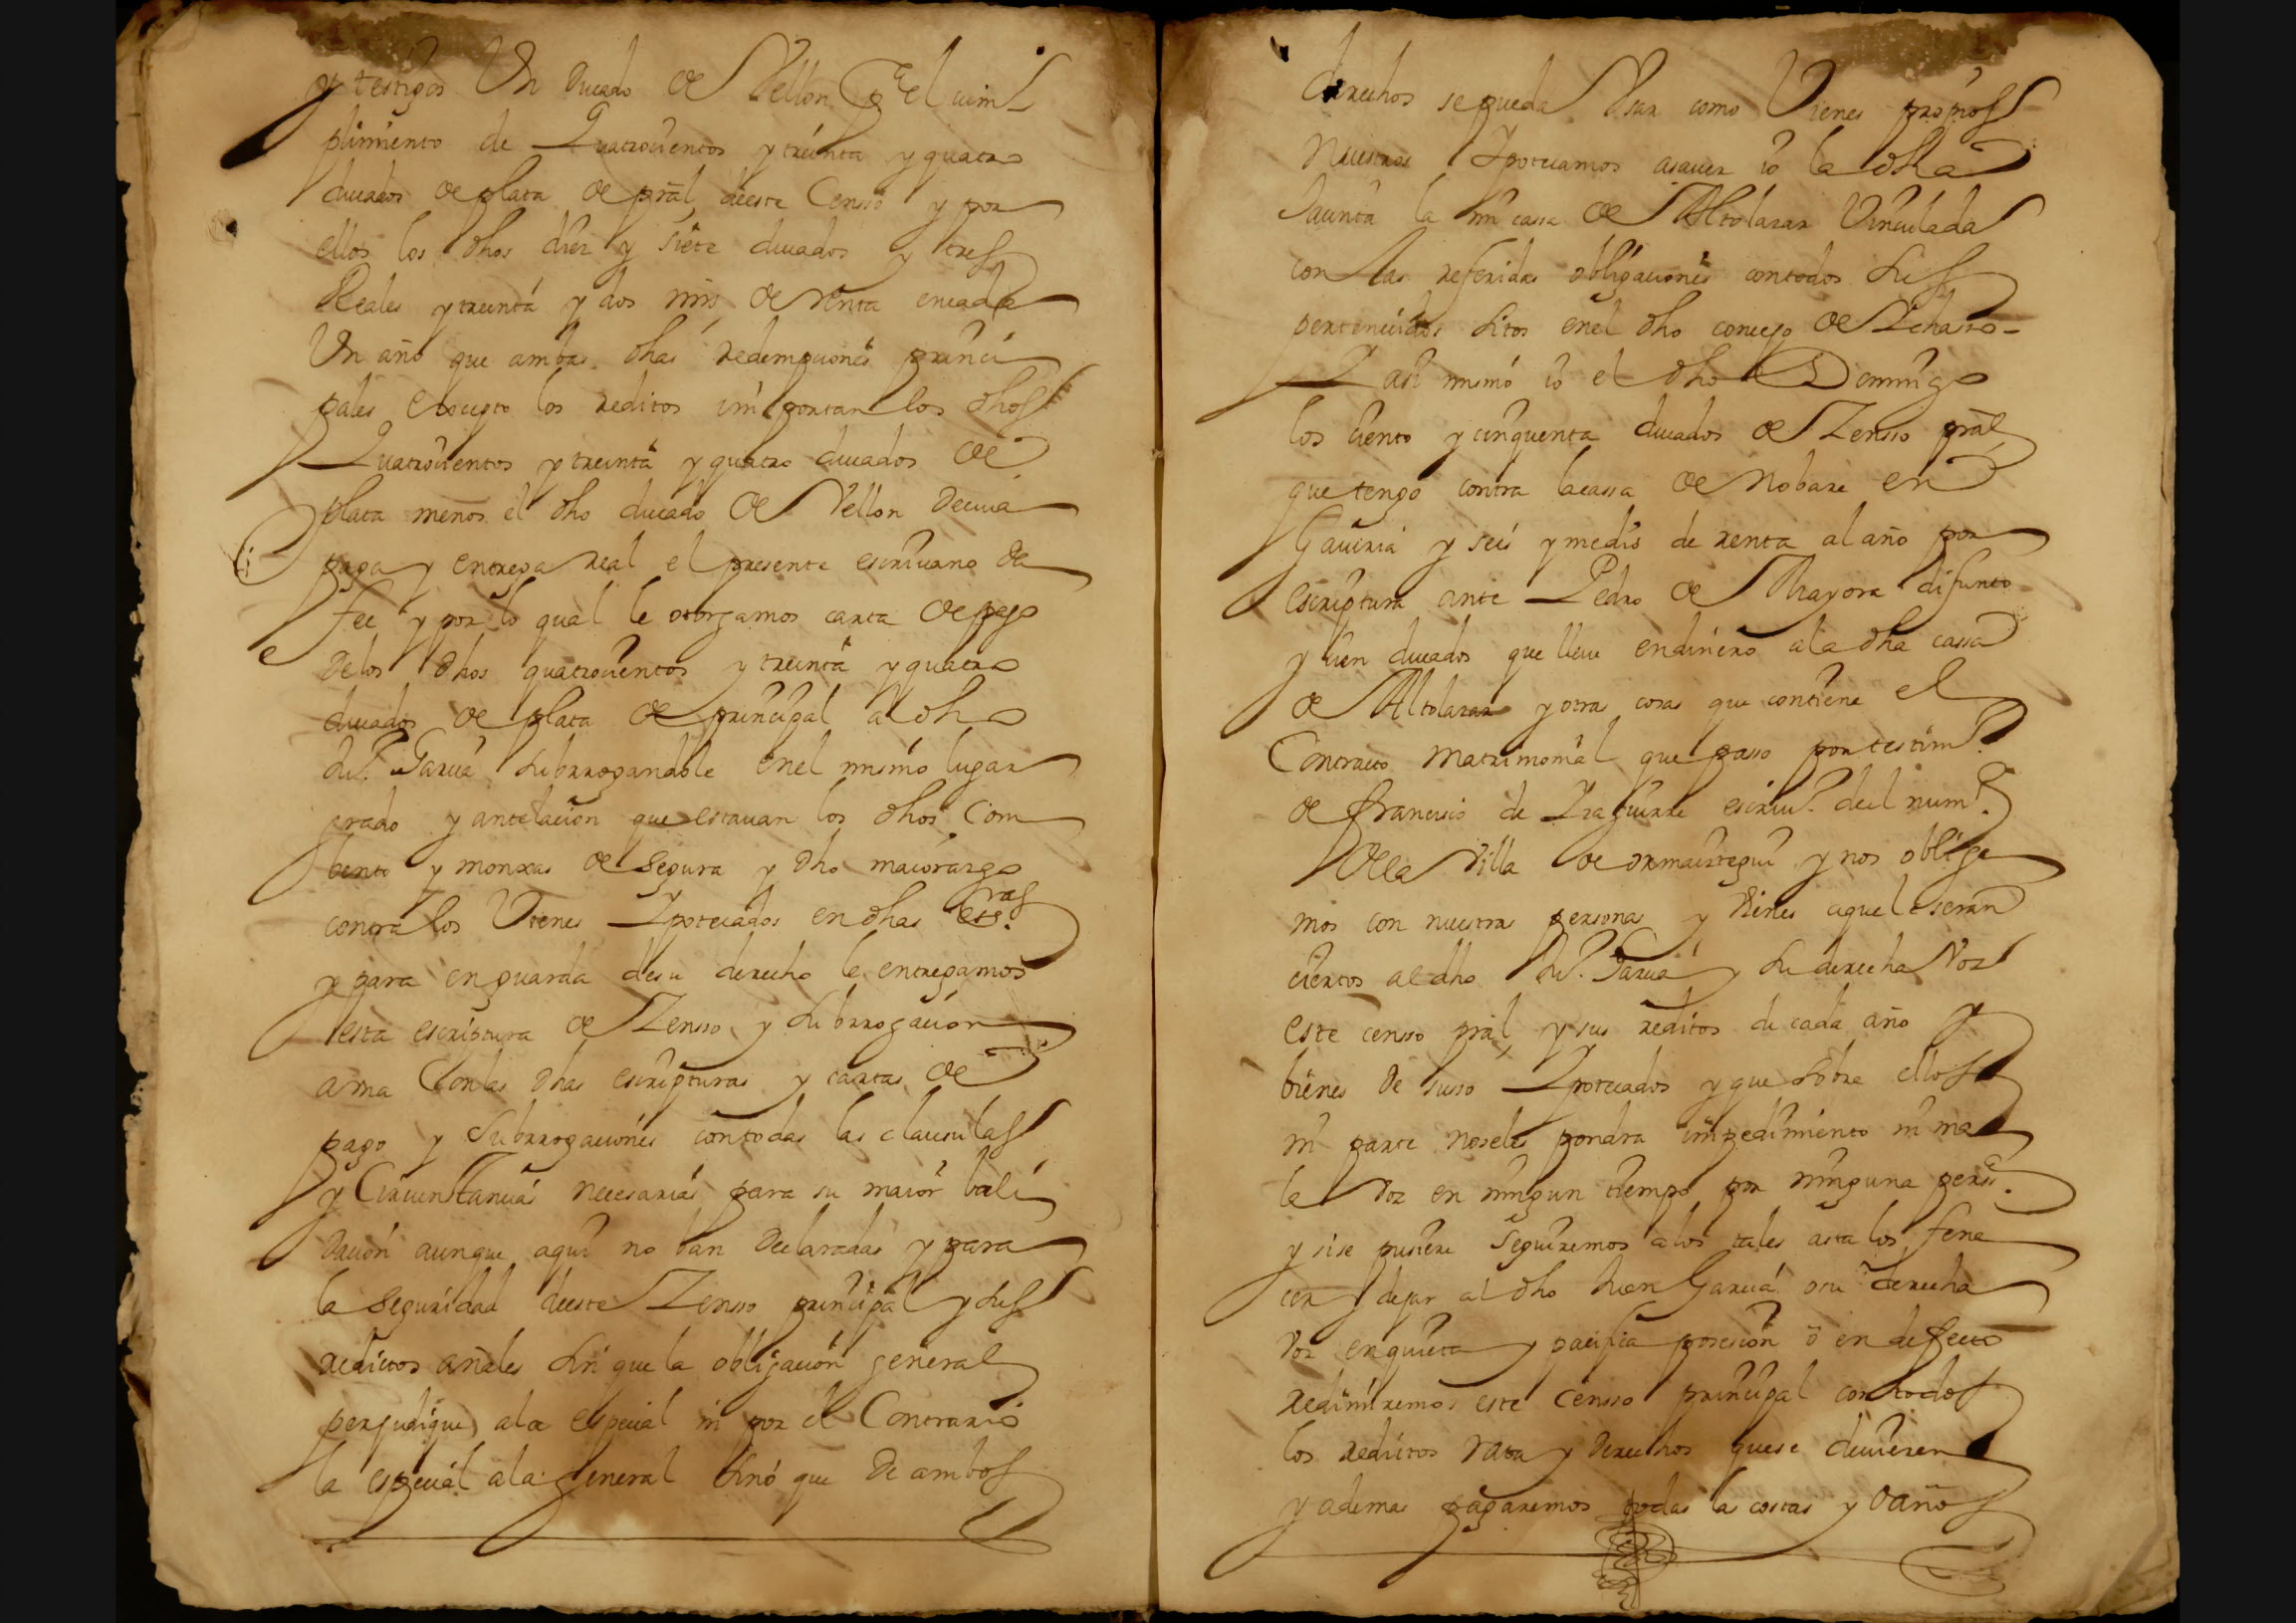 y testigos Un ducado de Vellon p.ª el cum
plimiento de Quatrocientos y treinta y quatro
ducados de plata de prãl deeste Censso y por
ellos los dhos diez y siete ducados y tres
Reales y treinta y dos mrs de renta encada
Un año que ambas dhas redempciones princi
pales excepto los reditos importan los dhos
Quatrocientos y treinta y quatro ducados de
plata menos el dho ducado de Vellon de cuia
paga y entrega real el presente escriuano da
fee y por lo qual le otorgamos carta de pago
delos dhos quatrocientos y treinta y quatro
ducados de plata de principal al dho
Ju.º Garcia subrrogandole enel mismo lugar
grado y antelacion que estauan los dhos com
bento y monxas de Segura y dho maiorazgo
contra los Vienes Ypotecados en dhas escr.ras
y para enguarda desu derecho le entregamos
esta escriptura de Zensso y subrrogacion
a una Conlas dhas escripturas y cartas de
pago y subrrogaciones contodas las clausulas
y Circunstancias necesarias para su maior bali
dacion aunque aqui no ban declaradas y para
la seguridad deeste Zensso principal y sus
redictos añales sin que la obligacion general
perjudique ala especial ni por el Contrario
la especial ala general sinó que de ambos
derechos se pueda Vsar como Vienes propios
nuestros Ypotecamos asauer io la dha
Juanta la mi cassa de Altolarar Vinculada
con las referidas obligaciones contodos sus
pertenecidos sitos enel dho concejo de Ichasso
Y asi mismo io el dho Domingo
los ciento y cinquenta ducados de Zensso prãl
que tengo contra lacassa de Nobare en
Gauiria y seis y medio de renta al año por
escriptura ante Pedro de Mayora difunto
y cien ducados que lleue endinero ala dha cassa
de Altolarar y otras cosas que contiene el
Contracto matrimonial que passo por testim.º
de francisco de Yraguirre escriu.º deel num.º
dela Villa de ormaiztegui y nos obliga
mos con nuestras personas y Vienes aquele seran
ciertos al dho Ju.º Garcia y su derecha Voz
este censso prãl y sus reditos de cada año y
bienes de susso Ypotecados y que sobre ellos
ni parte noseles pondra impedimiento ni ma
la Voz en ningun tiempo por ninguna pers.ª
y sise pusiere seguiremos alos tales asta los fene
cer y dejar al dho Juan Garcia o su derecha
Voz enquieta y pacifica posesion o en defecto
redimiremos este censso principal contodos
los redictos rata y derechos quese deuieren
y ademas pagaremos todas las costas y daños